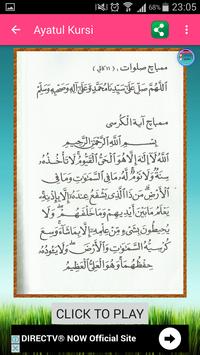 23:05
Ayatul Kursi
ممباچ صلوات ،
اَللّٰهُمَّ صَلِّ عَلَى سَيِّدِنَا مُحَمَّدٍ وَعَلَى آلِهِ وَصَحْبِهِ وَسَلِّمْ
ممباچ آية الكرسي
بِسْمِ اللهِ الرَّحْمٰنِ الرَّحِيْمِ
اَللّٰهُ لَا إِلٰهَ إِلَّا هُوَ الْحَيُّ الْقَيُّوْمُ لَا تَأْخُذُهُ
سِنَةٌ وَلَا نَوْمٌ لَهُ مَا فِى السَّمٰوَاتِ وَمَا فِى
الْأَرْضِ مَنْ ذَا الَّذِى يَشْفَعُ عِنْدَهُ إِلَّا بِإِذْنِهِ
يَعْلَمُ مَا بَيْنَ أَيْدِيهِمْ وَمَا خَلْفَهُمْ وَلَا
يُحِيطُونَ بِشَيْءٍ مِنْ عِلْمِهِ إِلَّا بِمَا شَاءَ وَسِعَ
كُرْسِيُّهُ السَّمٰوَاتِ وَالْأَرْضَ وَلَا يَئُودُهُ
حِفْظُهُمَا وَهُوَ الْعَلِيُّ الْعَظِيمُ
CLICK TO PLAY
DIRECTV® NOW Official Site